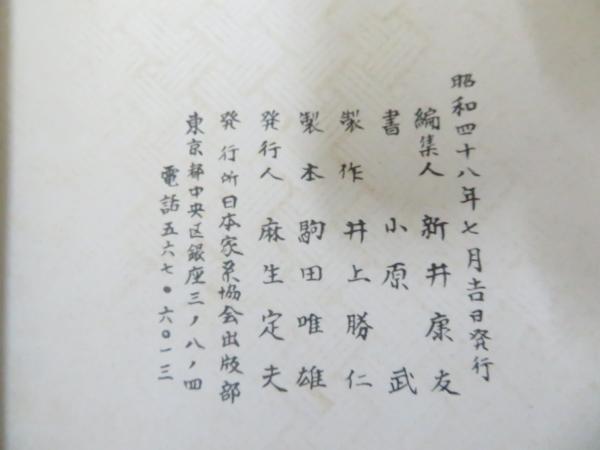 昭和四十八年七月吉日発行
編集人 新井康友
書 小原武
製作 井上勝仁
製本 駒田唯雄
発行人 麻生定夫
発行所日本家系協会出版部
東京都中央区銀座三ノ八ノ四
電話五六七・六〇一三